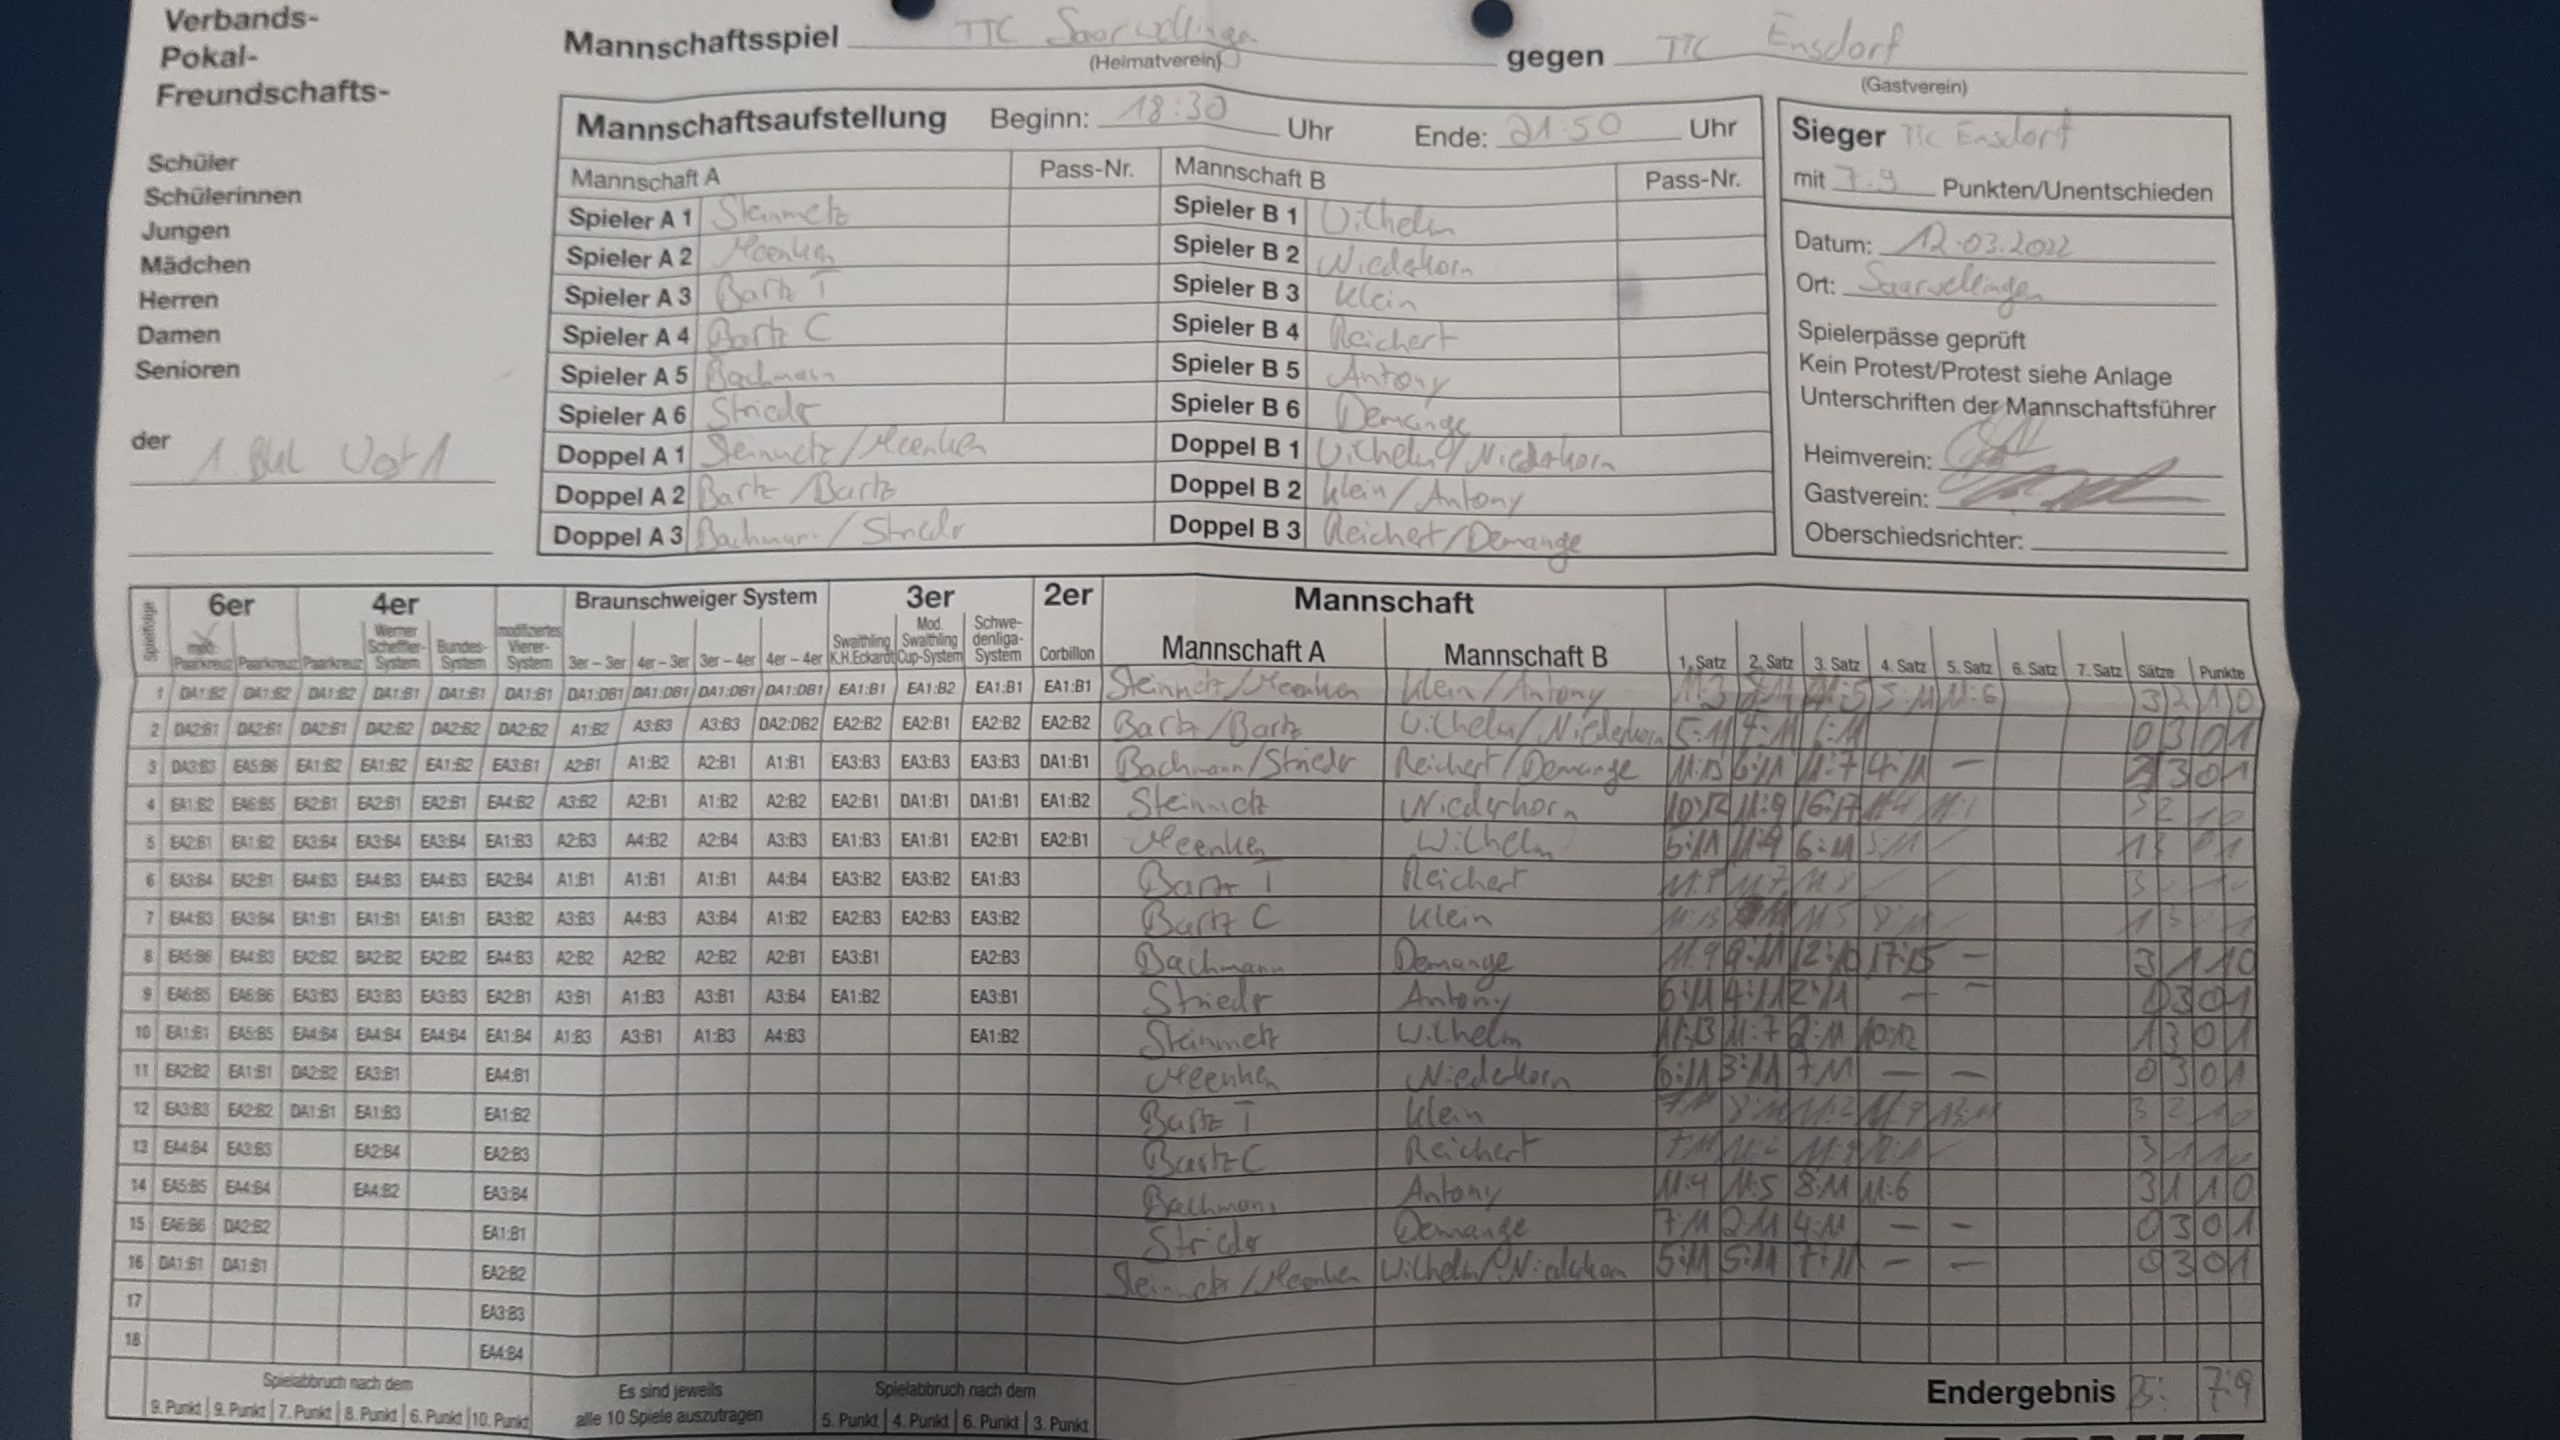 Verbands-
Pokal-
Freundschafts-
Mannschaftsspiel TTC Saarwellingen gegen TTC Ensdorf
(Heimatverein) (Gastverein)
Schüler
Schülerinnen
Jungen
Mädchen
Herren
Damen
Senioren
der
Mannschaftsaufstellung Beginn: 18:30 Uhr Ende: 21:50 Uhr
Mannschaft A Pass-Nr. Mannschaft B Pass-Nr.
Spieler A 1 Steinmetz Spieler B 1 Wilhelm
Spieler A 2 Meenken Spieler B 2 Niederkorn
Spieler A 3 Bartz T Spieler B 3 Klein
Spieler A 4 Bartz C Spieler B 4 Reichert
Spieler A 5 Bachmann Spieler B 5 Antony
Spieler A 6 Strieder Spieler B 6 Demange
Doppel A 1 Steinmetz/Meenken Doppel B 1 Wilhelm/Niederkorn
Doppel A 2 Bartz/Bartz Doppel B 2 Klein/Antony
Doppel A 3 Bachmann/Strieder Doppel B 3 Reichert/Demange
Sieger TTC Ensdorf
mit 7:9 Punkten/Unentschieden
Datum: 12.03.2022
Ort: Saarwellingen
Spielerpässe geprüft
Kein Protest/Protest siehe Anlage
Unterschriften der Mannschaftsführer
Heimverein:
Gastverein:
Oberschiedsrichter:
6er 4er Braunschweiger System 3er 2er Mannschaft
Spielfolge Paarkreuz Paarkreuz Paarkreuz Werner Scheffler-System Bundes-System modifiziertes Vierer-System 3er – 3er 4er – 3er 3er – 4er 4er – 4er Swaithling K.H.Eckardt Mod. Swaithling Cup-System Schwe-denliga-System Corbillon Mannschaft A Mannschaft B 1. Satz 2. Satz 3. Satz 4. Satz 5. Satz 6. Satz 7. Satz Sätze Punkte
1 DA1:B2 DA1:B2 DA1:B2 DA1:B1 DA1:B1 DA1:B1 DA1:DB1 DA1:DB1 DA1:DB1 DA1:DB1 EA1:B1 EA1:B2 EA1:B1 EA1:B1 Steinmetz/Meenken Klein/Antony 11:3 5:11 11:6 3 2 1 0
2 DA2:B1 DA2:B1 DA2:B1 DA2:B2 DA2:B2 DA2:B2 A1:B2 A3:B3 A3:B3 DA2:DB2 EA2:B2 EA2:B1 EA2:B2 EA2:B2 Bartz/Bartz Wilhelm/Niederkorn 5:11 4:11 6:11 0 3 0 1
3 DA3:B3 EA5:B6 EA1:B2 EA1:B2 EA1:B2 EA3:B1 A2:B1 A1:B2 A2:B1 A1:B1 EA3:B3 EA3:B3 EA3:B3 DA1:B1 Bachmann/Strieder Reichert/Demange 11:13 6:11 11:7 4:11 – 1 3 0 1
4 EA1:B2 EA6:B5 EA2:B1 EA2:B1 EA2:B1 EA4:B2 A3:B2 A2:B1 A1:B2 A2:B2 EA2:B1 DA1:B1 DA1:B1 EA1:B2 Steinmetz Niederkorn 10:12 11:9 11:4 3 2 1 0
5 EA2:B1 EA1:B2 EA3:B4 EA3:B4 EA3:B4 EA1:B3 A2:B3 A4:B2 A2:B4 A3:B3 EA1:B3 EA1:B1 EA2:B1 EA2:B1 Meenken Wilhelm 6:11 11:9 6:11 5:11 1 3 0 1
6 EA3:B4 EA2:B1 EA4:B3 EA4:B3 EA4:B3 EA2:B4 A1:B1 A1:B1 A1:B1 A4:B4 EA3:B2 EA3:B2 EA1:B3 Bartz T Reichert 11:7 11:8
7 EA4:B3 EA3:B4 EA1:B1 EA1:B1 EA1:B1 EA3:B2 A3:B3 A4:B3 A3:B4 A1:B2 EA2:B3 EA2:B3 EA3:B2 Bartz C Klein 11:13 11:5 8:11 1 3
8 EA5:B6 EA4:B3 EA2:B2 BA2:B2 EA2:B2 EA4:B3 A2:B2 A2:B2 A2:B2 A2:B1 EA3:B1 EA2:B3 Bachmann Demange 11:9 9:11 12:10 17:15 – 3 1 1 0
9 EA6:B5 EA6:B6 EA3:B3 EA3:B3 EA3:B3 EA2:B1 A3:B1 A1:B3 A3:B1 A3:B4 EA1:B2 EA3:B1 Strieder Antony 6:11 4:11 2:11 – – 0 3 0 1
10 EA1:B1 EA5:B5 EA4:B4 EA4:B4 EA4:B4 EA1:B4 A1:B3 A3:B1 A1:B3 A4:B3 EA1:B2 Steinmetz Wilhelm 11:13 11:7 2:11 10:12 1 3 0 1
11 EA2:B2 EA1:B1 DA2:B2 EA3:B1 EA4:B1 Meenken Niederkorn 6:11 3:11 7:11 – – 0 3 0 1
12 EA3:B3 EA2:B2 DA1:B1 EA1:B3 EA1:B2 Bartz T Klein 7:11 8:11 11:2 11:9 13:11 3 2 1 0
13 EA4:B4 EA3:B3 EA2:B4 EA2:B3 Bartz C Reichert 7:11 11:2 11:9 3 1 1
14 EA5:B5 EA4:B4 EA4:B2 EA3:B4 Bachmann Antony 11:4 11:5 8:11 11:6 3 1 1 0
15 EA6:B6 DA2:B2 EA1:B1 Strieder Demange 7:11 2:11 4:11 – – 0 3 0 1
16 DA1:B1 DA1:B1 EA2:B2 Steinmetz/Meenken Wilhelm/Niederkorn 5:11 5:11 7:11 – – 0 3 0 1
17 EA3:B3
18 EA4:B4
Spielabbruch nach dem Es sind jeweils Spielabbruch nach dem Endergebnis 7:9
9. Punkt 9. Punkt 7. Punkt 8. Punkt 6. Punkt 10. Punkt alle 10 Spiele auszutragen 5. Punkt 4. Punkt 6. Punkt 3. Punkt